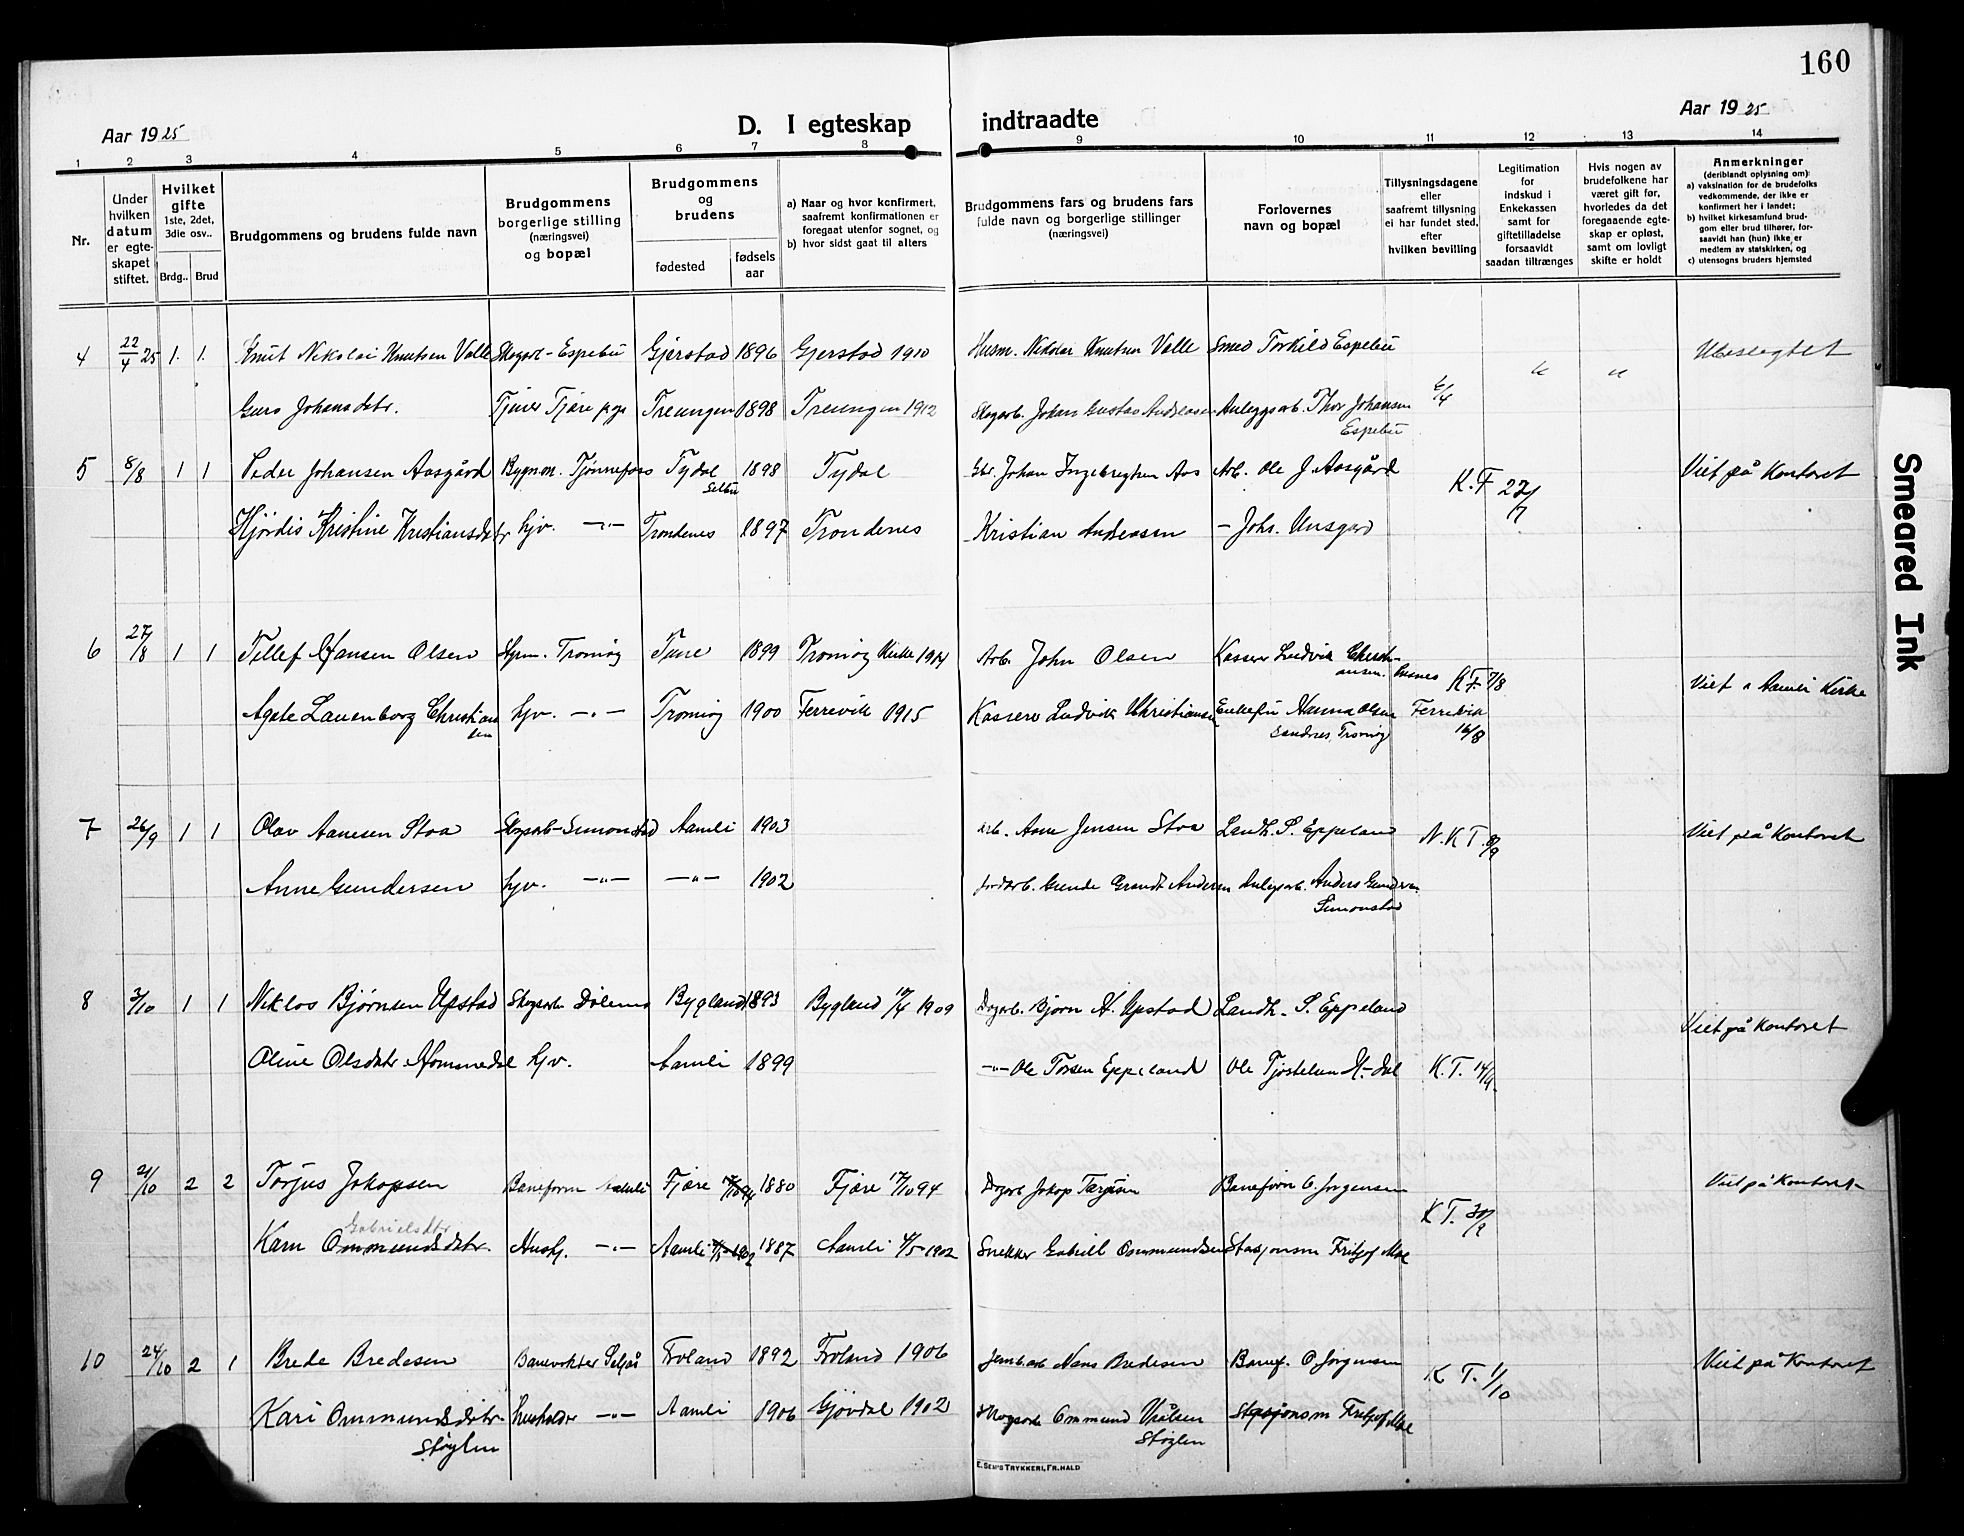 160
Aar 1925
D. I egteskap indtraadte
Aar 1925
1 2 3 4 5 6 7 8 9 10 11 12 13 14
Nr.
Under hvilken datum er egteskapet stiftet.
Hvilket gifte 1ste, 2det, 3die osv..
Brdg.. Brud
Brudgommens og brudens fulde navn
Brudgommens borgerlige stilling (næringsvei) og bopæl
Brudgommens og brudens
fødested
fødsels aar
a) Naar og hvor konfirmert, saafremt konfirmationen er foregaat utenfor sognet, og
b) hvor sidst gaat til alters
Brudgommens fars og brudens fars fulde navn og borgerlige stillinger (næringsvei)
Forlovernes navn og bopæl
Tillysningsdagene eller saafremt tillysning ei har fundet sted, efter hvilken bevilling
Legitimation for indskud i Enkekassen samt for giftetilladelse forsaavidt saadan tiltrænges
Hvis nogen av brudefolkene har været gift før, hvorledes da det foregaaende egteskap er opløst, samt om lovligt skifte er holdt
Anmerkninger (deriblandt oplysning om):
a) vaksination for de brudefolks vedkommende, der ikke er konfirmert her i landet;
b) hvilket kirkesamfund brudgom eller brud tilhører, forsaavidt han (hun) ikke er medlem av statskirken, og
c) utensogns bruders hjemsted
4 22/4 25 1. 1. Knut Nikolai Knutsen Valle Skogarb- Espebu Gjerstad 1896 Gjerstad 1910 Husm. Nikolai Knutsen Valle Smed Torkild Espebu " " Ubeslegtet
Guro Johansdtr. Treungen 1898 Treungen 1912 Skogarb. Johan Gustav Andreasen Anleggsarb. Thor Johansen 6/4
Espebu
5 8/8 1 1 Peder Johansen Aasgård Bygnm. Tjønnefoss Tydal 1898 Tydal Johan Ingebrigtsen Aas Arb. Ole J. Aasgård K. F 27/7 Viet på Kontoret
Selbu
Hjördis Kristine Kristiansdtr hjv. -"- Trondenes 1897 Trondenes Kristian Andreassen - Johs. Unsgard
6 27/8 1 1 Tellef Hansen Olsen Tromøy Tune 1899 Tromøy Kirke 1914 Arb. John Olsen Kasserer Ludvik Christiansen. K F. 7/8 Viet i Aamli Kirke
Agate Lauenborg Christiansen hjv. -"- Tromöy 1900 Færevik 1915 Kasserer Ludvik Christiansen Enkefru Hanna Olsen Færevik
Sandnes, Tromöy 16/8
7 26/9 1 1 Olav Aanesen Stoa Skogarb- Simonstad Aamli 1903 Arb. Ane Jensen Stoa Landh. S. Eppeland N. K T. 8/9 Viet på Kontoret
Anne Gundersen hjv. -"- -"- 1902 Jordarb. Gunde Grandt Andersen Anlegsarb. Anders Gundersen
Simonstad
8 3/10 1 1 Niklos Bjørnsen Upstad Skogsarb Dölemo Bygland 1893 Bygland 17/4 1909 Dagarb. Bjørn N. Upstad Landh. S. Eppeland Viet på Kontoret
Oline Olsdatr Hommedal hjv. Aamli 1899 -"- Ole Torsen Eppeland Ole Tjøstelsen H-dal K. T. 14/9
9 2/10 2 2 Torjus Jakopsen Baneform Aamli Fjære 1880 Fjære 17/10 94 Dagarb Jakop Tarjusen Baneform O. Jorgensen K T. 30/9 Viet på Kontoret
Gabrielsdtr
Karn Ommundsdatr. Hush. -"- Aamli 1887 Aamli 4/5-1902 Snekker Gabriel Ommundsen Stasjonsm Fritjof Moe
10 24/10 2 1 Brede Bredesen Banevokter Seljås Froland 1892 Froland 1906 Jernb.arb Hans Bredesen Banef. O. Jorgensen K T. 1/10 Viet på Kontoret
Kari Ommundsdatr- husholder -"- Aamli 1906 Gjövdal 1902 Skogsarb Ommund Vrålsen Stasjonsm Fritjof Moe
Støylen Støylen
E. SEM'S TRYKKERI, FR.HALD
Smeared Ink